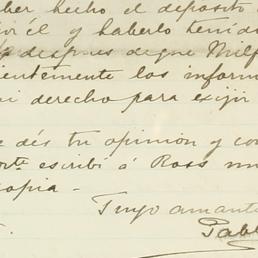 ber hecho el depósito
por él y haberlo tenido
después de que Milf
entemente los inform
mi derecho para exijir
e dés tu opinión y con
escribí á Ross
copia -
Tuyo amant
Pabl